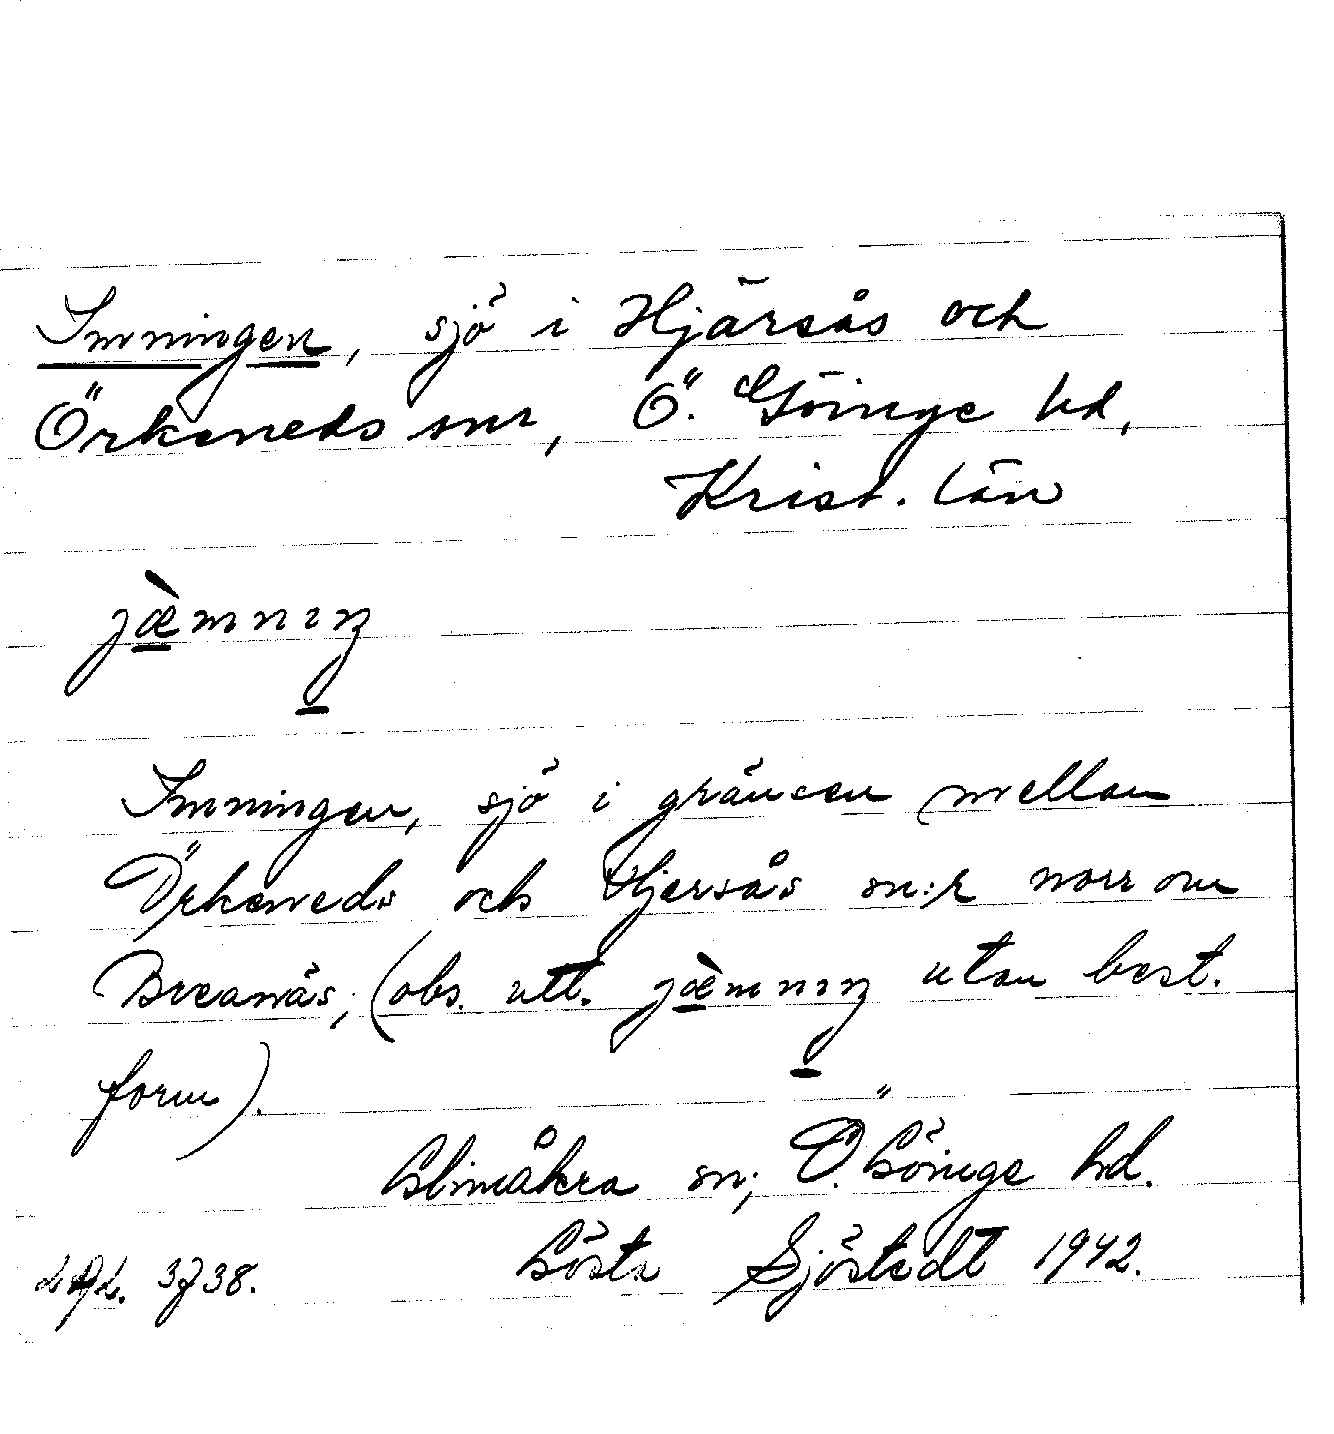 Immingen, sjö i Hjärsås och
Örkeneds snr, Ö. Göinge hd,
Krist. län
jæ̀mnıŋ
Immingen, sjö i gränsen mellan
Örkeneds och Hjersås sn:r norr om
Breanäs; (obs. utt. jæ̀mnıŋ utan best.
form).
Glimåkra sn; Ö. Göinge hd.
Gösta Sjöstedt 1942.
3738.